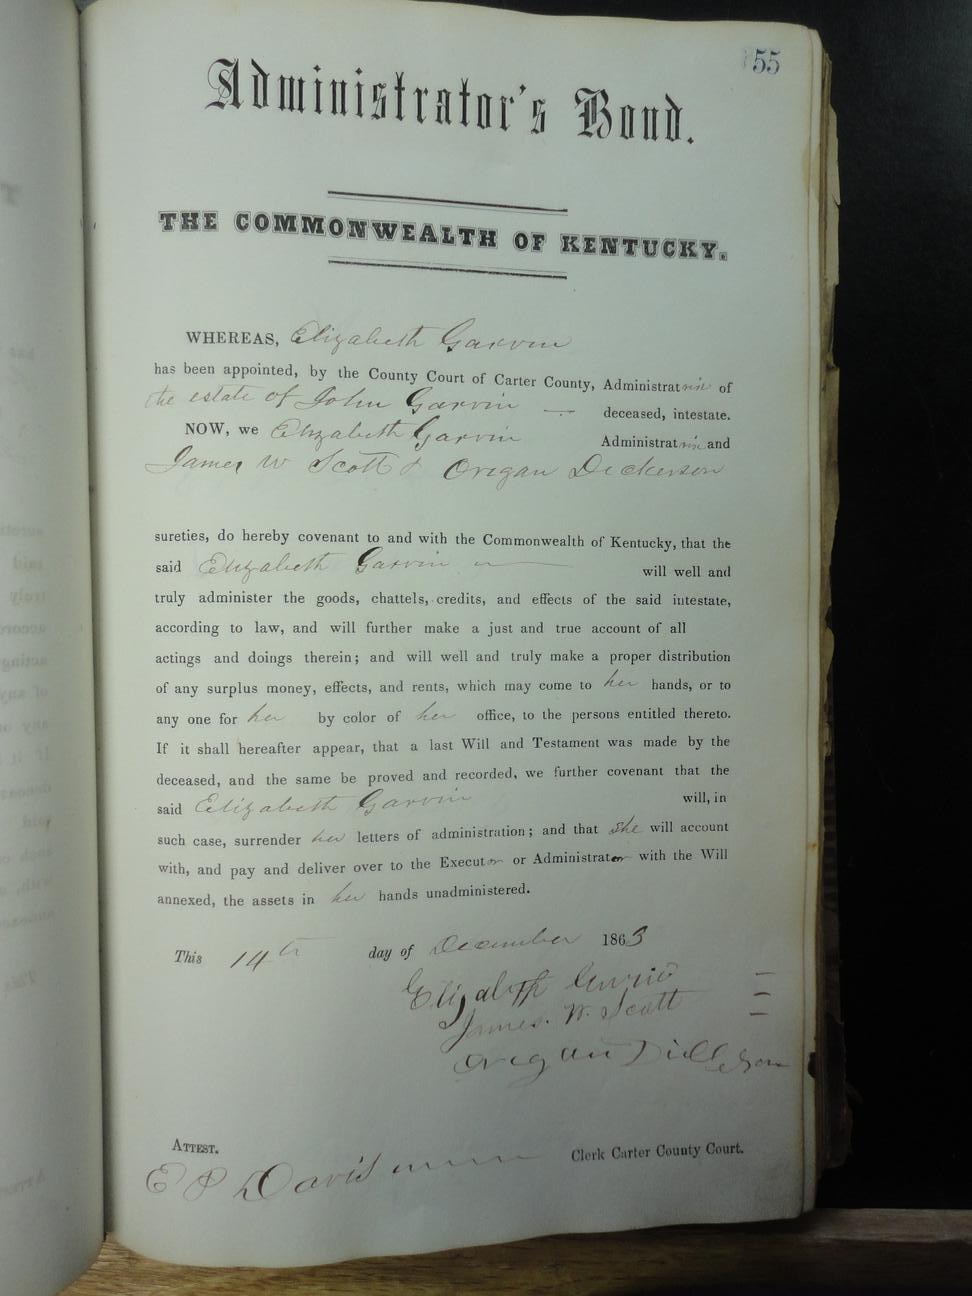 55
Administrator's Bond.
THE COMMONWEALTH OF KENTUCKY.
WHEREAS, Elizabeth Garvin
has been appointed, by the County Court of Carter County, Administratrix of
the estate of John Garvin — deceased, intestate.
NOW, we Elizabeth Garvin Administratrix and
James W Scott & Origan Dickerson
sureties, do hereby covenant to and with the Commonwealth of Kentucky, that the
said Elizabeth Garvin will well and
truly administer the goods, chattels, credits, and effects of the said intestate,
according to law, and will further make a just and true account of all
actings and doings therein; and will well and truly make a proper distribution
of any surplus money, effects, and rents, which may come to her hands, or to
any one for her by color of her office, to the persons entitled thereto.
If it shall hereafter appear, that a last Will and Testament was made by the
deceased, and the same be proved and recorded, we further covenant that the
said Elizabeth Garvin will, in
such case, surrender her letters of administration; and that she will account
with, and pay and deliver over to the Executor or Administrator with the Will
annexed, the assets in her hands unadministered.
This 14th day of December 1863
Elizabeth
James. W. Scott
Origan
ATTEST.
E P Davis Clerk Carter County Court.